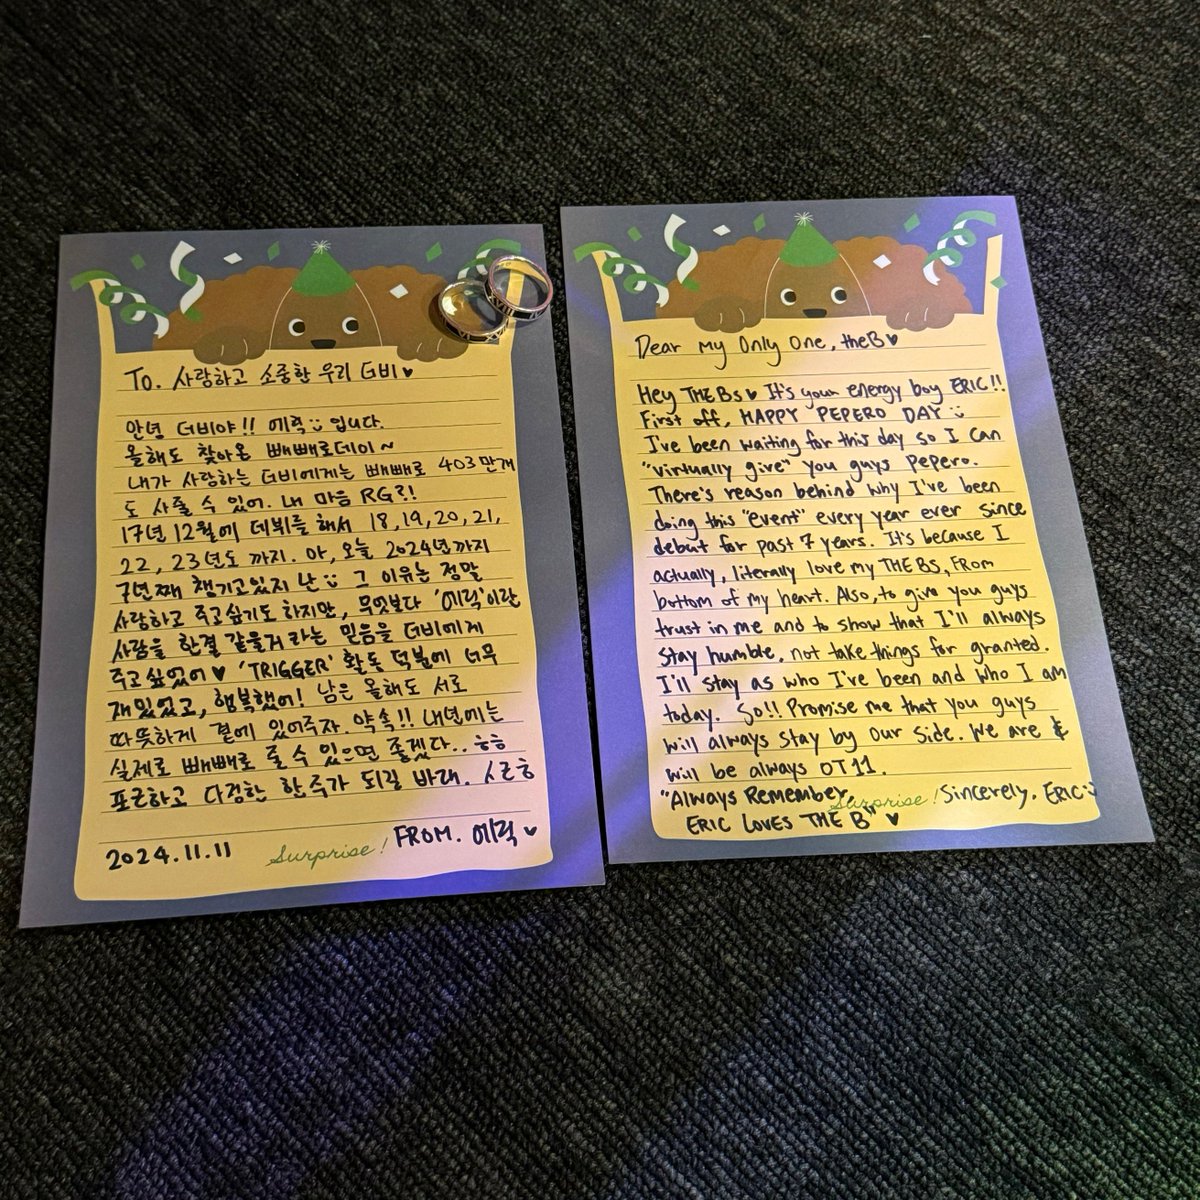 To. 사랑하고 소중한 우리 더비♥
안녕 더비야!! 에릭ü 입니다.
올해도 찾아온 빼빼로데이~
내가 사랑하는 더비에게는 빼빼로 403만개
도 사줄 수 있어. 내 마음 RG?!
17년 12월에 데뷔를 해서 18, 19, 20, 21,
22, 23년도 까지. 아, 오늘 2024년까지
7년째 챙기고있지 난ü 그 이유는 정말
사랑하고 주고싶기도 하지만, 무엇보다 '에릭'이란
사람은 한결 같을거라는 믿음을 더비에게
주고싶었어♥ 'TRIGGER' 활동 덕분에 너무
재밌었고, 행복했어! 남은 올해도 서로
따뜻하게 곁에 있어주자. 약속!! 내년에는
실제로 빼빼로 줄 수 있으면 좋겠다.. ㅎㅎ
포근하고 다정한 한 주가 되길 바래.
2024.11.11
Surprise!
FROM. 에릭♥
XVIII
Dear My Only One, theB♥
Hey THEBs♥ It's your energy boy ERIC!!
First off, HAPPY PEPERO DAY ü
I've been waiting for this day so I can
"virtually give" you guys Pepero.
There's reason behind why I've been
doing this "event" every year ever since
debut for past 7 years. It's because I
actually, literally love my THEBS, From
bottom of my heart. Also, to give you guys
trust in me and to show that I'll always
stay humble, not take things for granted.
I'll stay as who I've been and who I am
today. So!! Promise me that you guys
will always stay by our side. We are &
will be always OT11.
"Always Remember,
Surprise!
Sincerely, ERICü
ERIC LOVES THE B" ♥